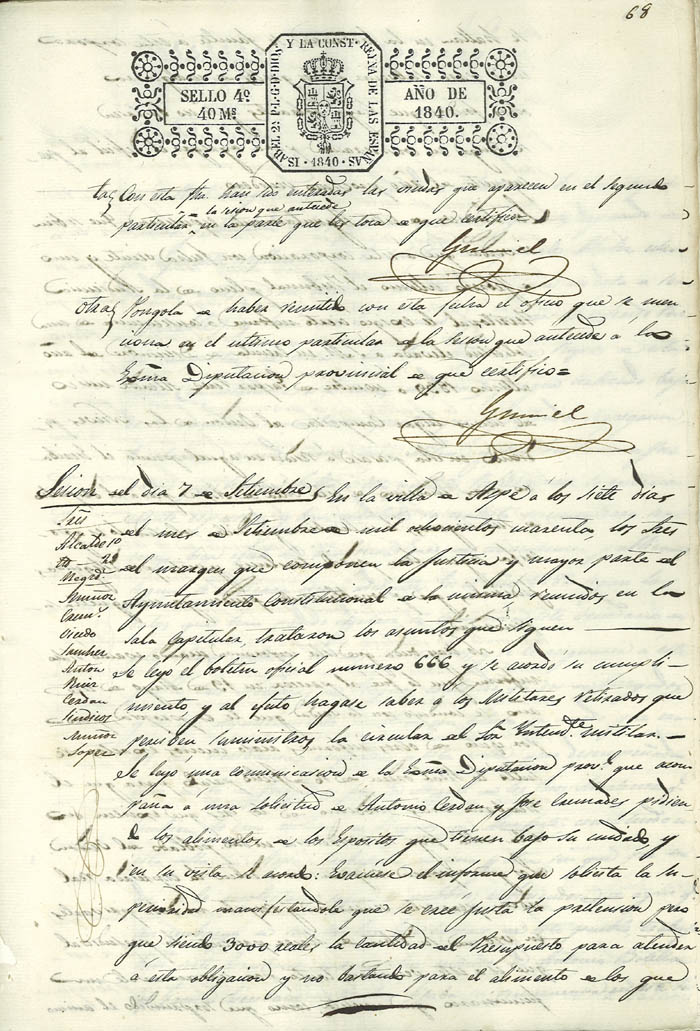 68
ISABEL 2ª P.L.G.D DIOS Y LA CONST. REINA DE LAS ESPAÑAS · 1840 ·
SELLO 4º
40 Ms
AÑO DE
1840.
Con esta fha han sido enteradas las viudas que aparecen en el segundo
la sesion que antecede
particular en la parte que les toca de que certifico
Otra
Pongola de haber remitido con esta fecha el oficio que se men
ciona en el ultimo particular de la Sesion que antecede á la
Exma Diputacion provincial de que certifico =
Sesion del dia 7 de Setiembre
En la villa de Aspe á los siete dias
Sres
del mes de Setiembre de mil ochocientos cuarenta, los Sres
Alcalde 1º
2º
del margen que componen la Justicia y mayor parte del
Regid.
Ayuntamiento Constitucional de la misma reunidos en la
Muñoz
Sala Capitular, trataron los asuntos que siguen
Oviedo
Sanchez
Se leyo el boletin oficial numero 666 y se acordó su cumpli-
Anton
Ruiz
miento, y al efecto hagase saber á los Militares Retirados que
Cerdan
Sindicos
perciben suministros la circular del Sor Intendte militar. -
Muñoz
Lopez
Se leyó una comunicacion de la Exma Diputacion provl. que acom
paña á una solicitud de Antonio Cerdan y Jose pidien-
do los alimentos de los Espositos que tienen bajo su cuidado y
en su vista se acordo: Evacuese el informe que solicita la su-
perioridad manifestandole que se creé justa la pretension pero
que siendo 3000 reales la cantidad del Presupuesto para atender
á esta obligacion y no bastando para el alimento de los que